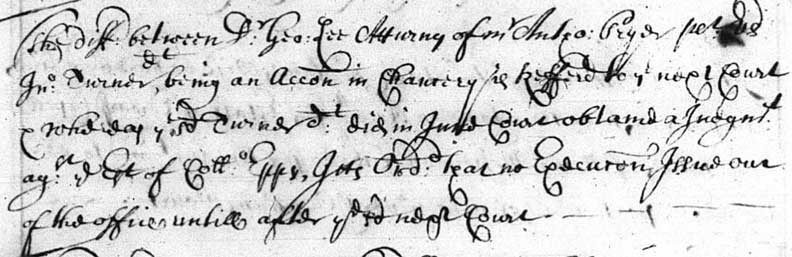 The diff: between Dr: Geo: Lee Atturny of mr Antho: Pryer plt
Jno: Turner, dt being an Accon in Chancery is Refferd to ye next Court
& whereas ye sd Turner dt did in June Court obtaine a Judgmt:
agst: ye Est of Coll:o Epps, Itts Ordd: that no Execucon, Issue out
of the office untill after ye sd next Court